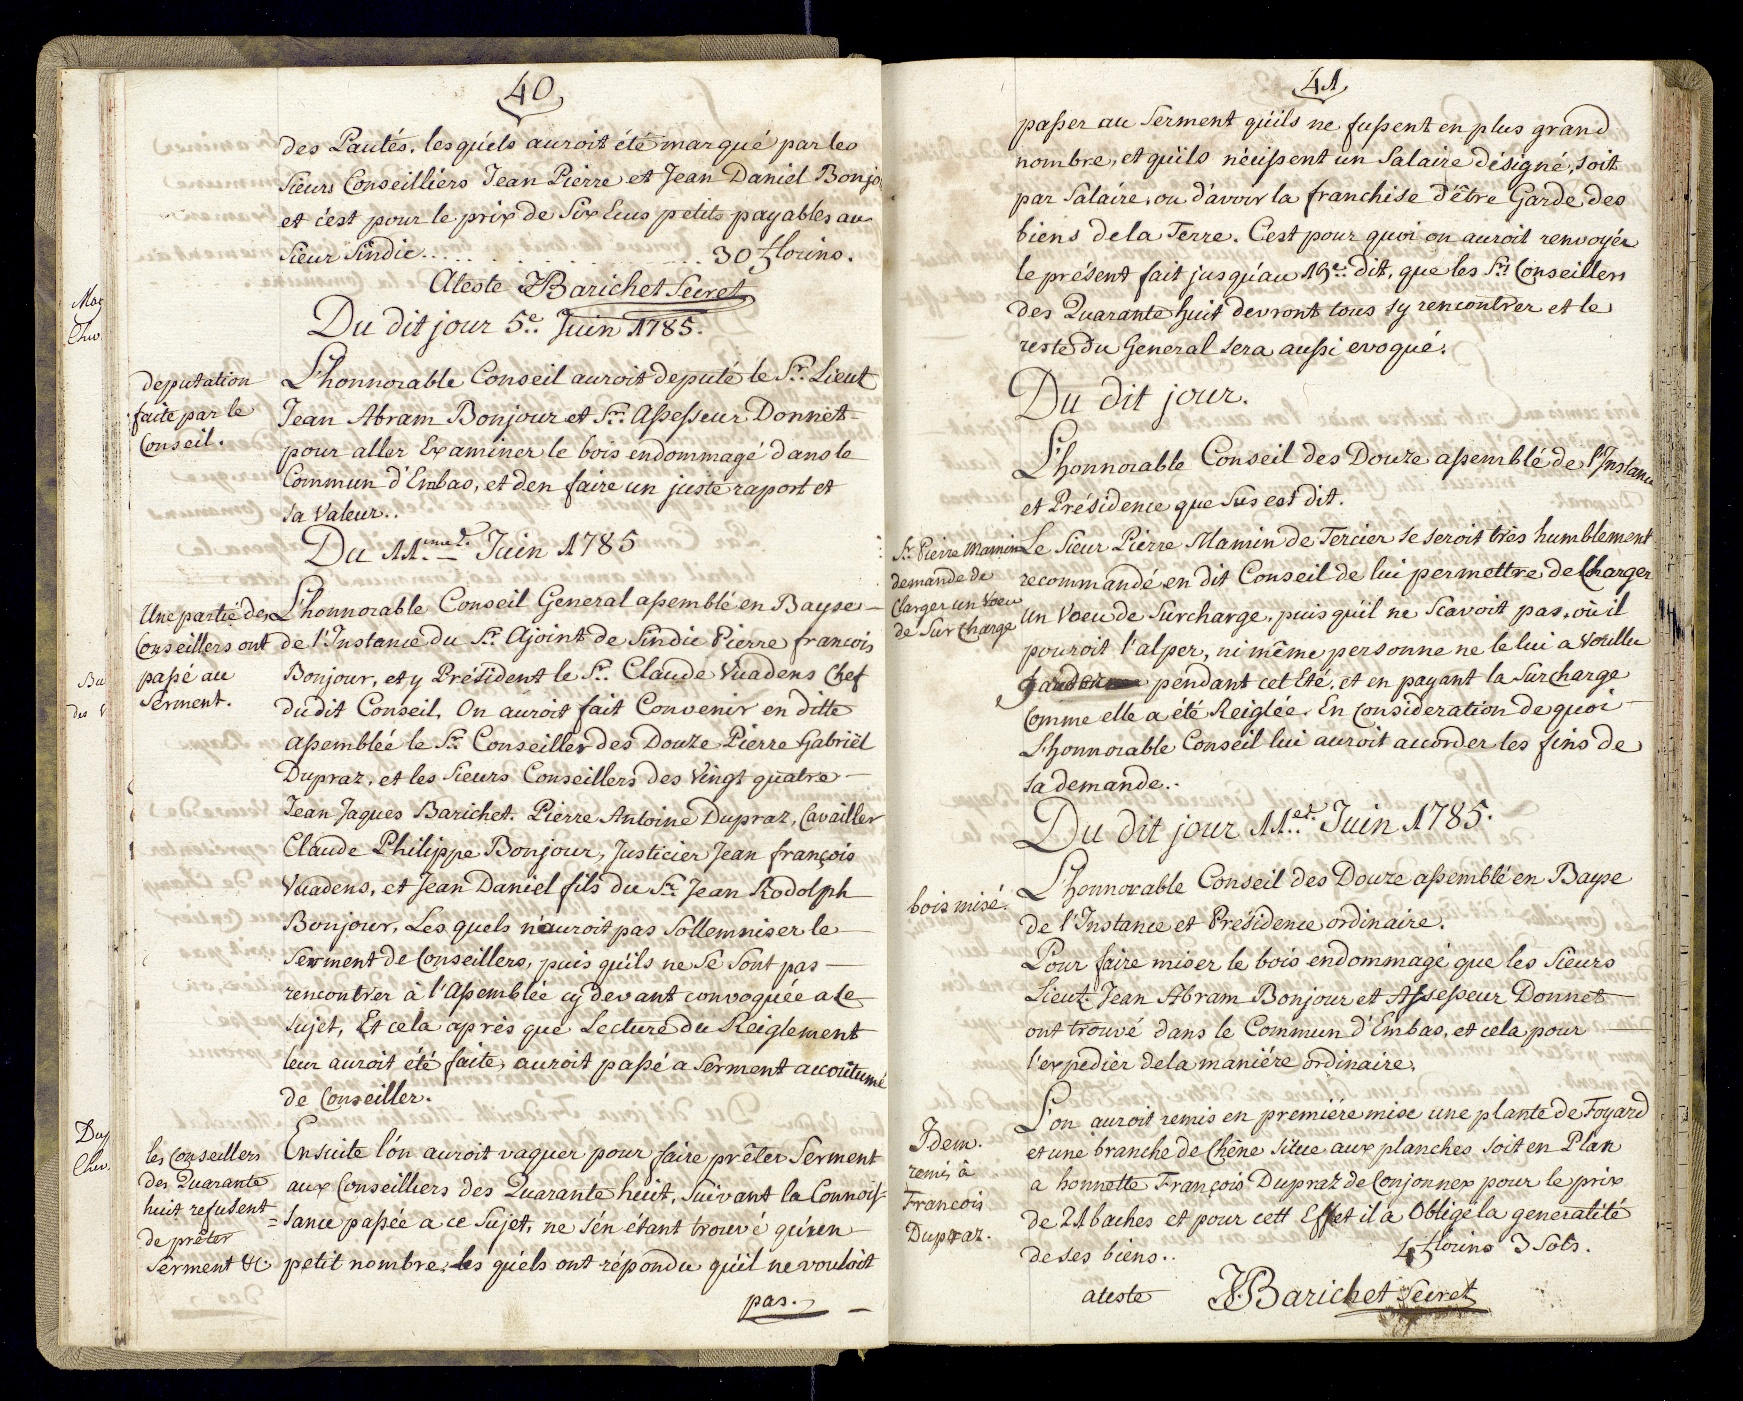 40
des Pautés, lesquéls auroit été marqué par les
Sieurs Conseilliers Jean Pierre et Jean Daniel Bonjo
et c'est pour le prix de Six Ecus petits payables au
Sieur Sindic.............. 30 florins.
Ateste Barichet Secret
Du dit jour 5e. Juin 1785.
deputation
faite par le
Conseil.
L'honnorable Conseil auroit deputé le Sr. Lieut
Jean Abram Bonjour et Sr. Assesseur Donnet
pour aller Examiner le bois endommagé dans le
Commun d'Embas, et d'en faire un juste raport et
sa Valeur..
Du 11.me d. Juin 1785
Une partie des
Conseillers ont
passé au
Serment.
L'honnorable Conseil General assemblé en Bayse
de l'Instance du Sr. Ajoint de Sindic Pierre françois
Bonjour, et y Président le Sr. Claude Vuadens Chef
du dit Conseil, On auroit fait Convenir en ditte
assemblée le Sr. Conseiller des Douze Pierre Gabriël
Dupraz, et les Sieurs Conseillers des Vingt quatre
Jean Jaques Barichet. Pierre Antoine Dupraz, Cavailler
Claude Philippe Bonjour, Justicier Jean françois
Vuadens, et Jean Daniel fils du Sr. Jean Rodolph
Bonjour, Les quels n'auroit pas Sollemniser le
Serment de Conseillers, puis qu'ils ne Se Sont pas
rencontrer à l'Assemblée cy devant convoquée a Ce
Sujet, Et cela après que Lecture du Reiglement
leur auroit été faite, auroit passé a Serment accoutumé
de Conseiller.
les Conseillers
des Quarante
huit refusent
de prêter
Serment &c
Ensuite l'on auroit vaquer pour faire prêter Serment
aux Conseilliers des Quarante huit, Suivant la Connois-
=sance passée a ce Sujet, ne s'én étant trouvé qu'un
petit nombre, les quéls ont répondu qu'il ne vouloit
pas.
41
passer au Serment qu'ils ne fussent en plus grand
nombre, et qu'ils n'éussent un Salaire désigné, soit
par Salaire, ou d'avoir la franchise d'être Garde des
biens de la Terre. C'est pour quoi on auroit renvoyér
le présent fait jusqu'au 19e. dit, que les Srs. Conseillers
des Quarante huit devront tous s'y rencontrer et le
reste du General sera aussi evoqué.
Du dit jour.
L'honnorable Conseil des Douze assemblé de l'Instance
et Présidence que Sus est dit.
Sr. Pierre Mamin
demande de
Charger un Voeu
de Sur Charge
Le Sieur Pierre Mamin de Tercier se seroit très humblement
recommandé en dit Conseil de lui permettre de Charger
un Voeu de Surcharge, puis qu'il ne Scavoit pas, où il
pouroit l'alper, ni même personne ne le lui a Voullu
pendant cet Eté, et en payant la Surcharge
Comme elle a été Reiglée. En Consideration de quoi
L'honnorable Conseil lui auroit accorder les fins de
sa demande..
Du dit jour 11.e d. Juin 1785.
bois misé.
L'honnorable Conseil des Douze assemblé en Bayse
de l'Instance et Présidence ordinaire.
Pour faire miser le bois endommagé que les Sieurs
Lieut. Jean Abram Bonjour et Assesseur Donnet
ont trouvé dans le Commun d'Embas, et cela pour
l'expedier de la maniére ordinaire.
Idem.
remis à
Francois
Dupraz.
L'on auroit remis en premiére mise une plante de Foyard
et une branche de Chêne situe aux planches soit en Plan
a honnette François Dupraz de Conjonnex pour le prix
de 21 baches et pour cett Effet il a Obligé la generalité
de ses biens..
4 florins 3 Sols.
ateste Barichet Secret